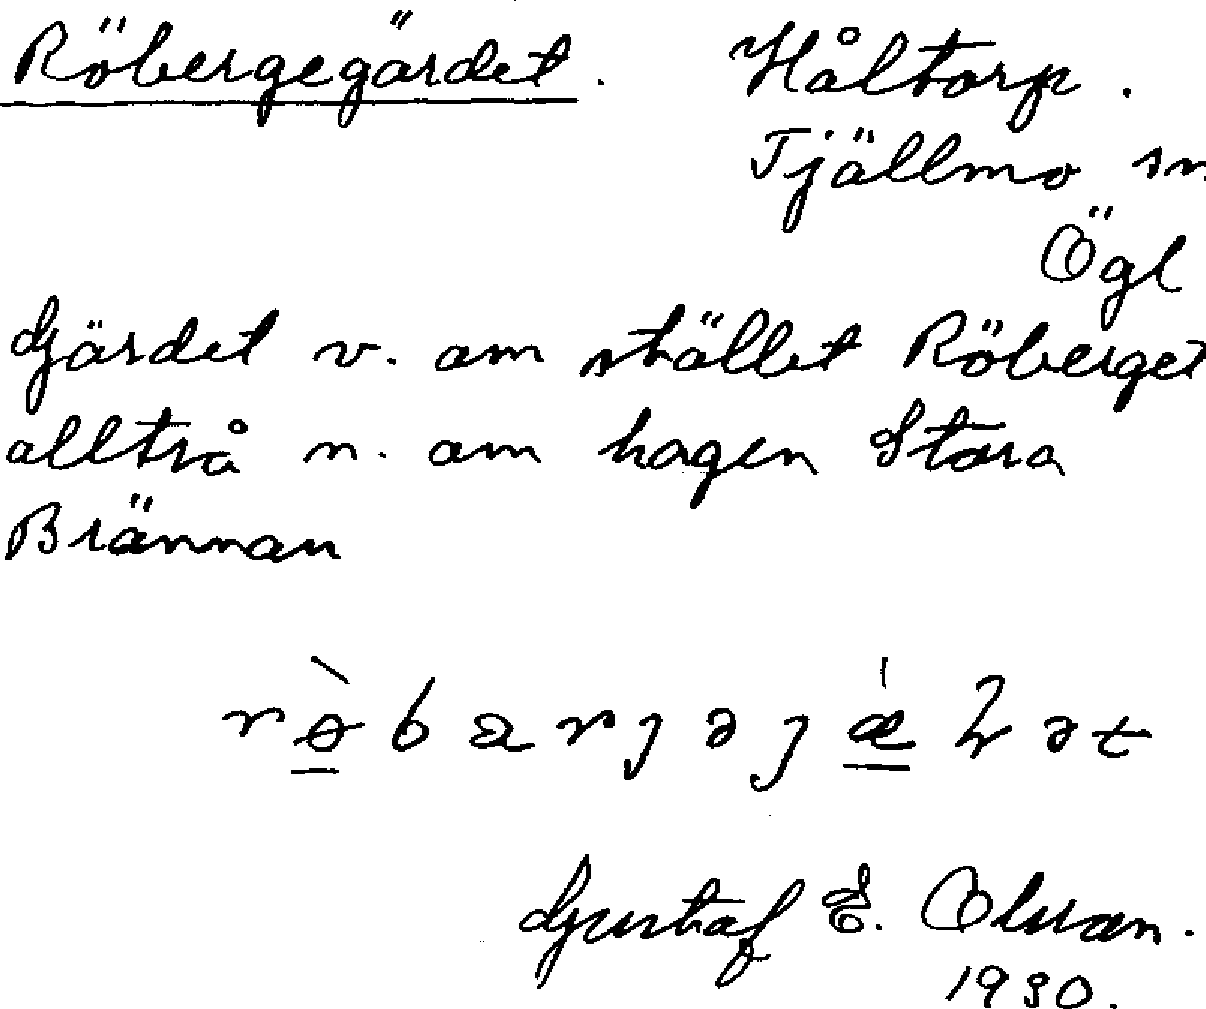 Röbergegärdet. Håltorp.
Tjällmo sn
Ögl
Gärdet v. om stället Röberget
alltså n. om hagen Stora
Brännan
Gustaf E. Olson.
1930.